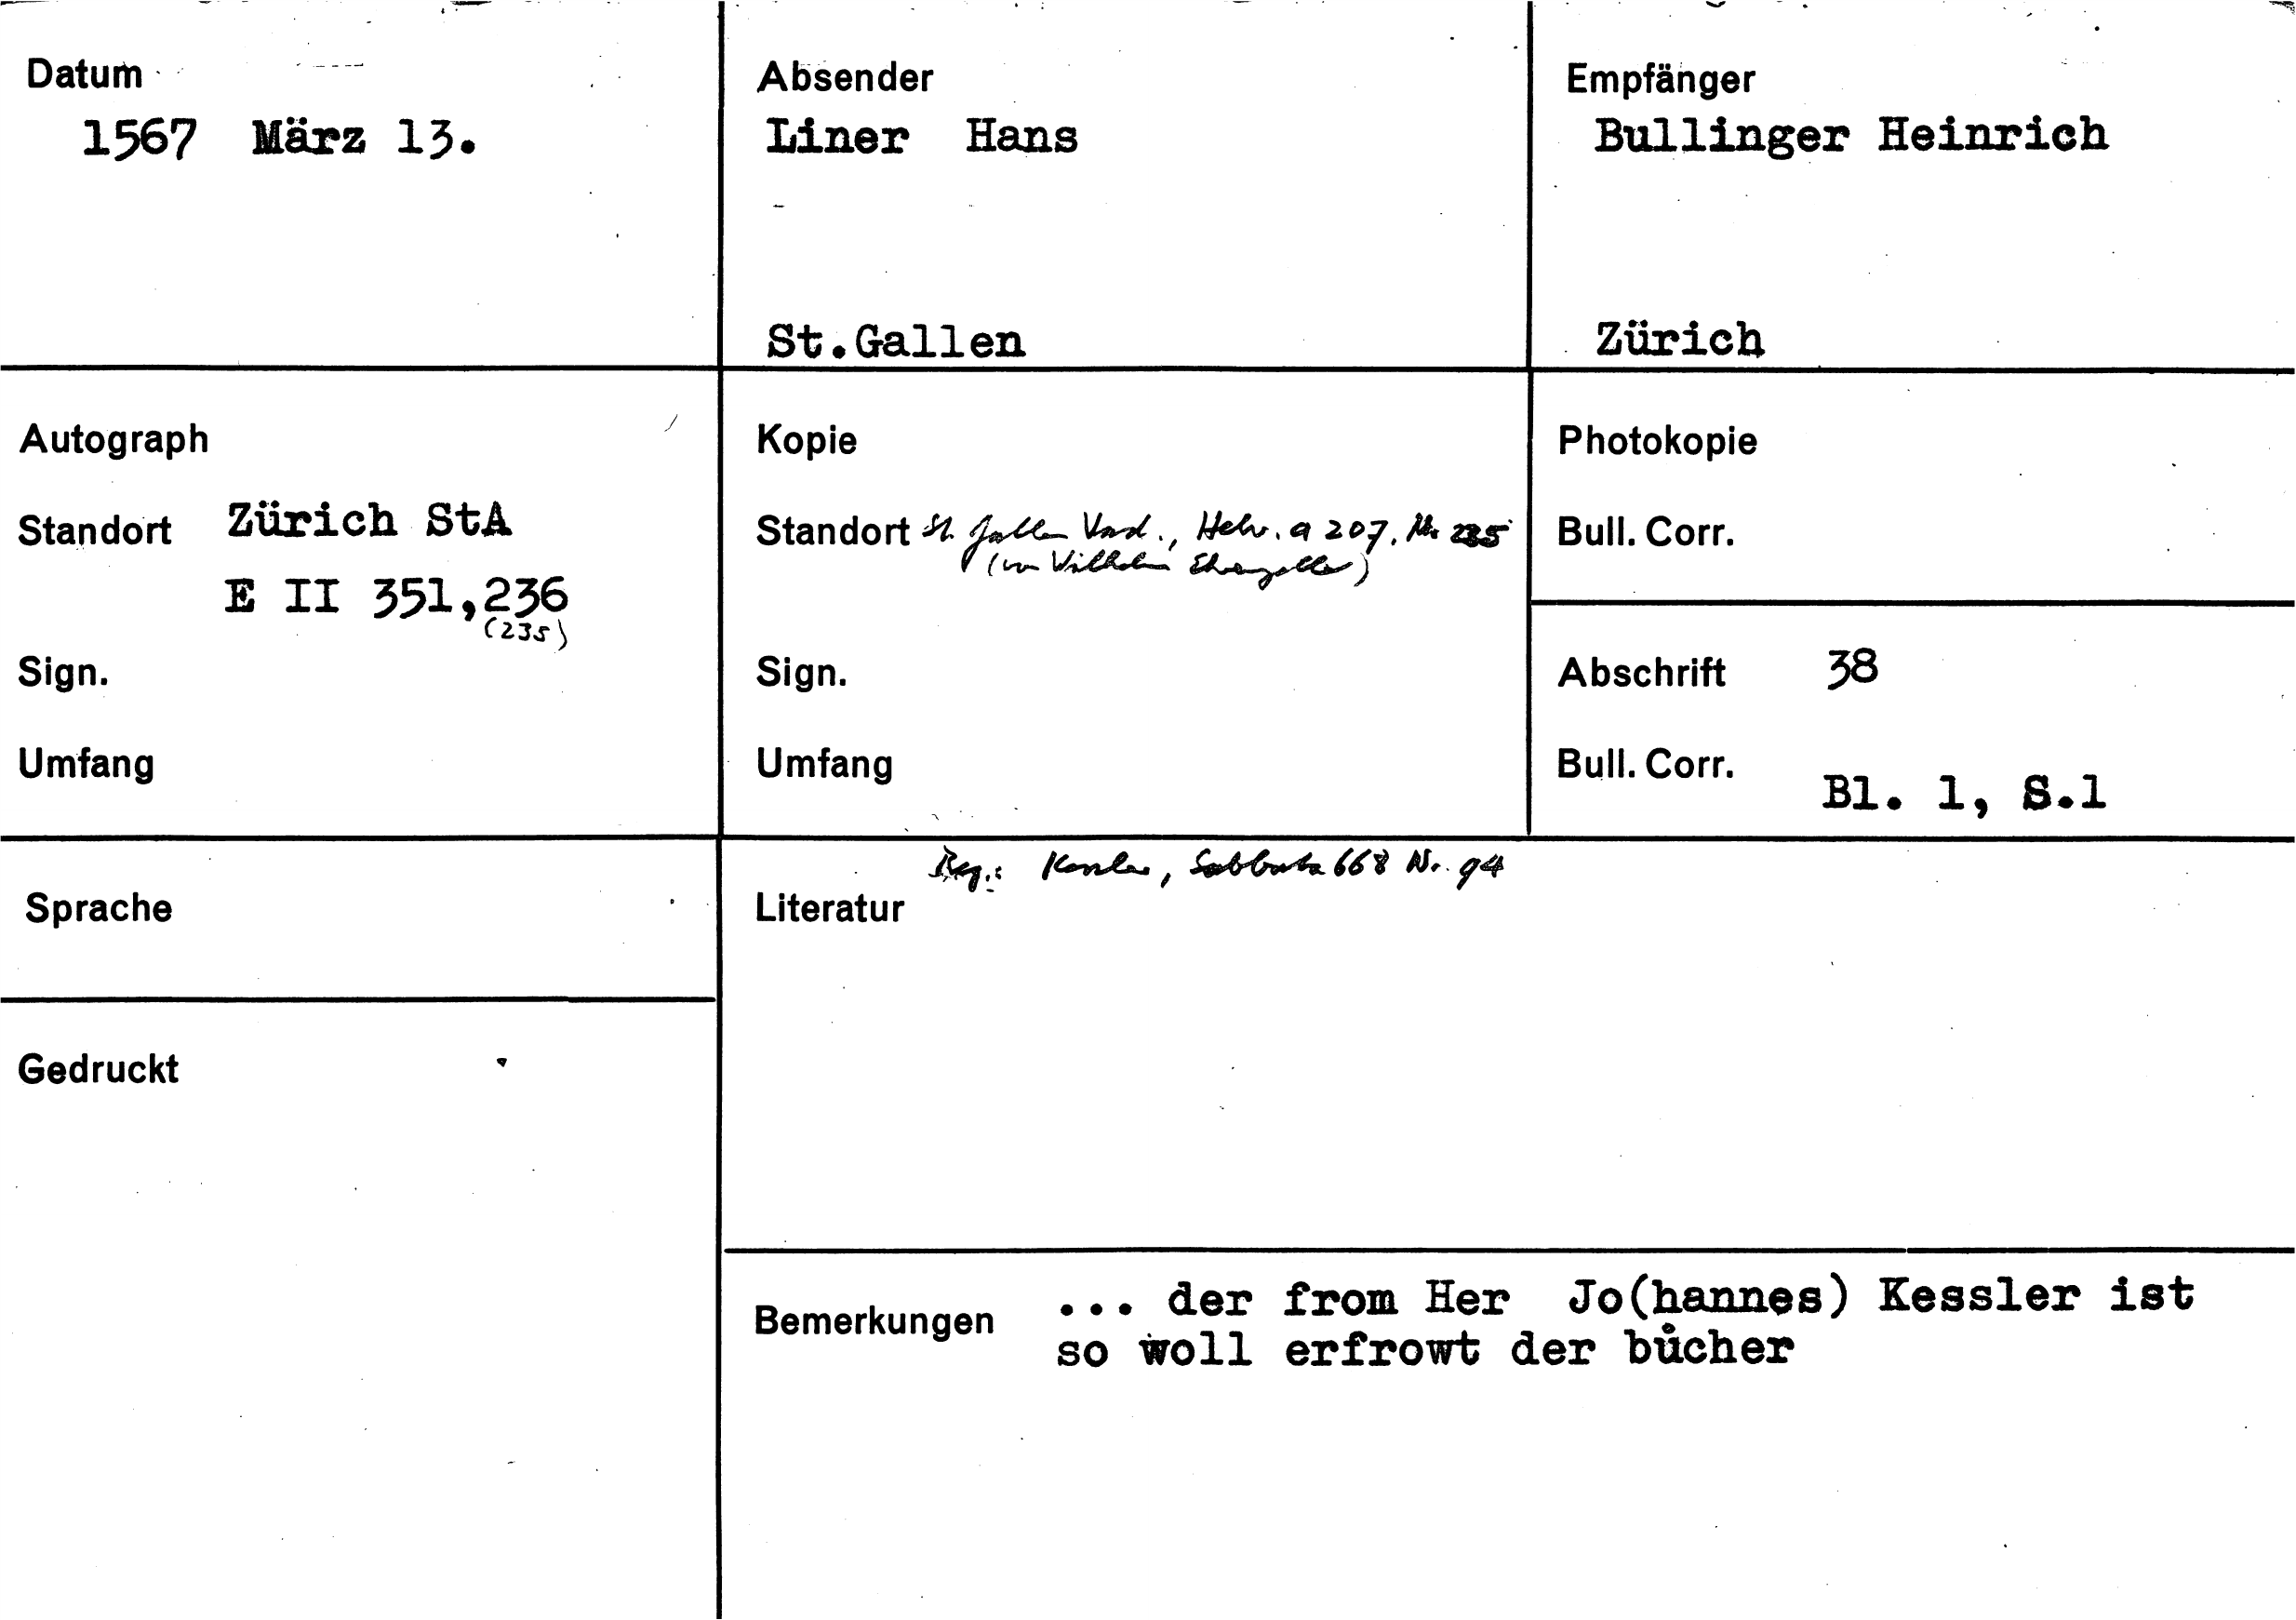 Datum
1567 März 13.
Absender
Liner Hans
St.Gallen
Empfänger
Bullinger Heinrich
Zürich
Autograph
Standort Zürich StA
E II 351,236
(235)
Sign.
Umfang
Kopie
Standort St. Gallen Vad., Helv. a 207, Nr. 235
(von Wilhelm Ehrenzeller)
Sign.
Umfang
Photokopie
Bull. Corr.
Abschrift 38
Bull. Corr.
Bl. 1, S.1
Sprache
Gedruckt
Reg.: Kessler, Sabbata 668 Nr. 94
Literatur
Bemerkungen ... der from Her Jo(hannes) Kessler ist
so woll erfrowt der bůcher